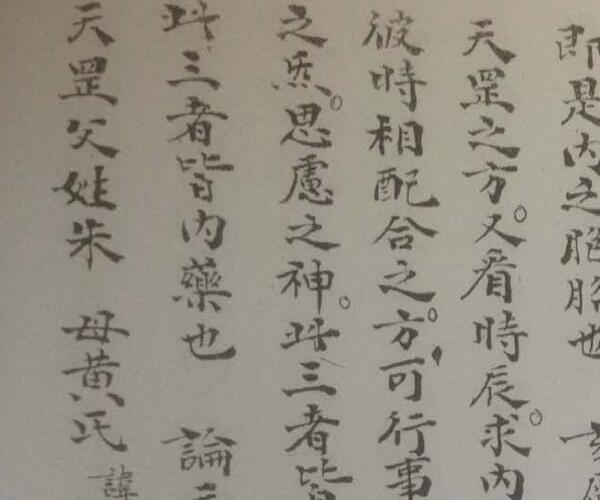 即是内之胞胎也
天罡之方。又看時辰。求内
彼時相配合之方。可行事
之炁。思慮之神。此三者皆
此三者皆内藥也　論
天罡父姓朱　母黄氏　諱